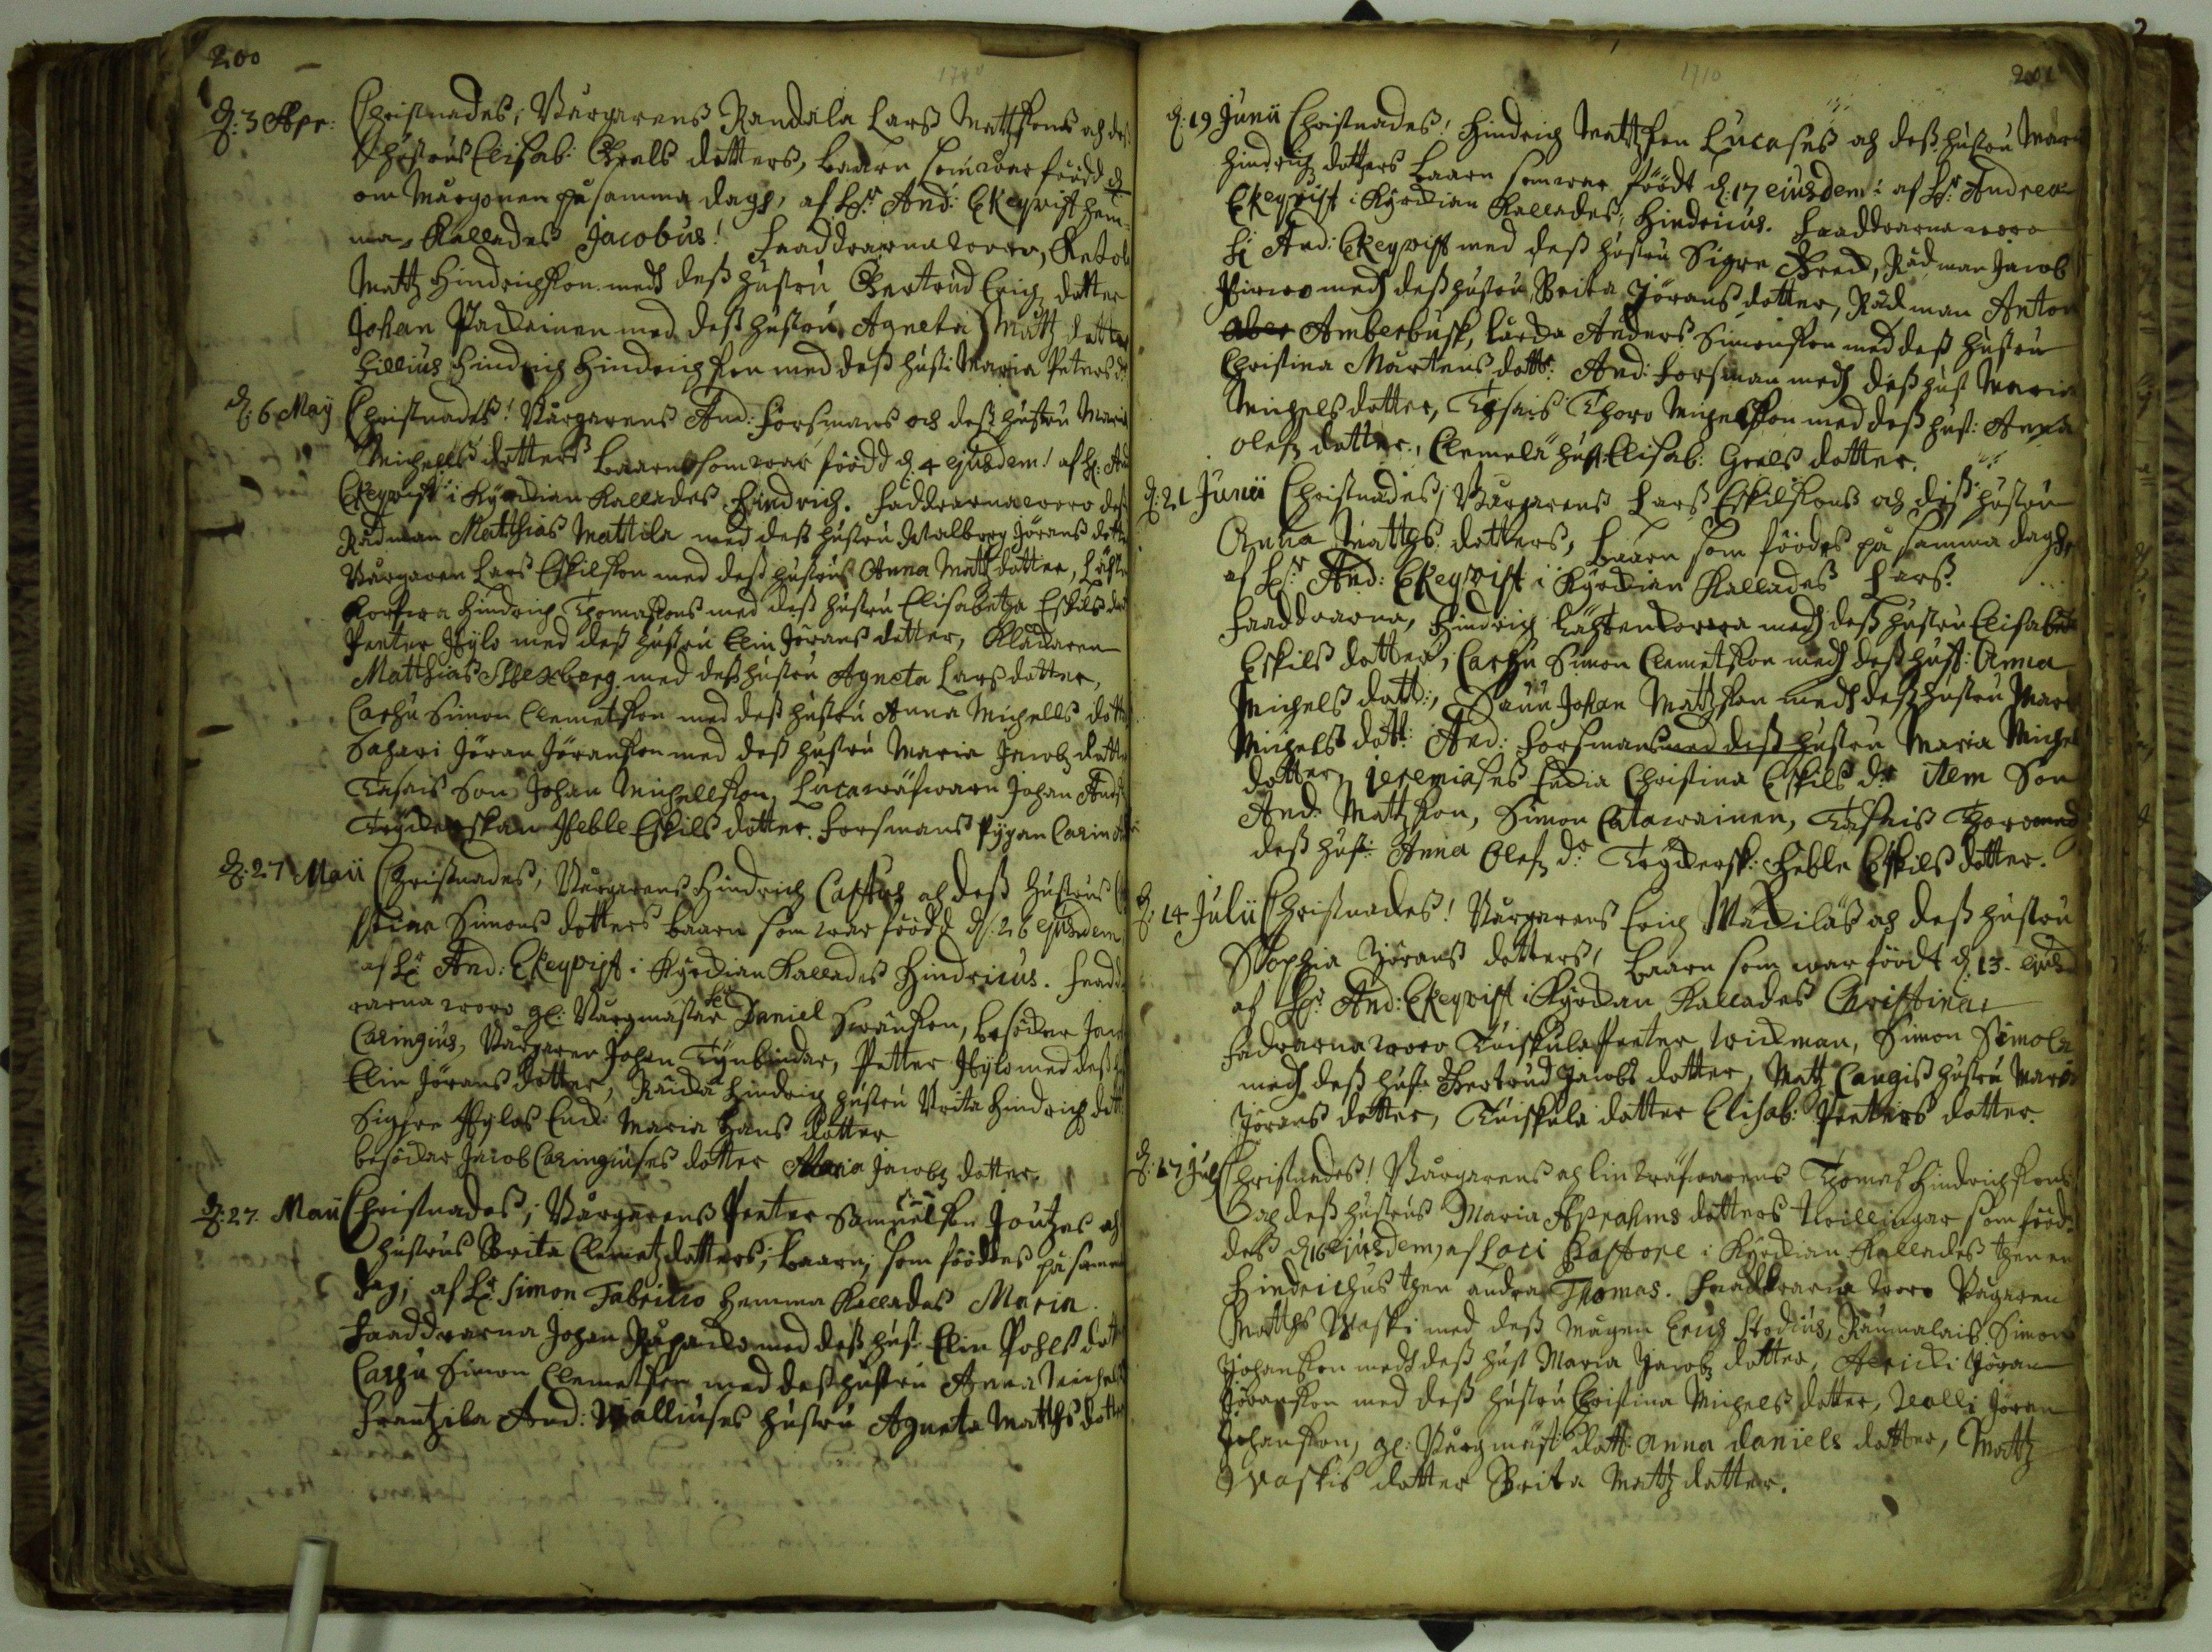 200
1710
d. 3 Apr: Christnades, Bårgarens Randala Larß Mattssons och deß
hustrus Elisab: Grels dotters, baarn som war föödd d
om Mårgonen på samma dagh, af Hr And: Ekeqvist hem-
ma, Kallades Jacobus! Faaddrarna woro,
Mattz Hindrichsson medh deß hustru Gertrud Erichz dotter
Johan Packainen med deß hustru Agneta Mattz dotter
Hindrich Hindrichsson med deß hust: Maria Peters dr
d. 6 Maij Christnades! Bårgarens And: Forsmans och deß hustru Maria
Michells dotters baarn som war föödd d. 4 ejusdem! af Hr And
Ekeqvist i Kyrckian Kallades Hindrich. Faddrarna woro
Rådman Matthias Mattila med deß hustru Walborg Jörans dotter
Bårgaren Larß Eskilsson med deß hustrus Anna Mattz dotter,
Hindrich Thomassons med deß hustru Elisabetha Eskils
Peeter Hylo med deß hustru Elin Jörans dotter, Klåckaren
Matthias med deß hustru Agneta Larsdotter,
Carhu Simon Clemetsson med deß hustru Anna Michells dotter
Sahari Jöran Jöransson med deß hustru Maria Jacobz dotter
Son Johan Michellsson, Johan Ands
Heble Eskils dotter. Forsmans Pygan Carin
d. 27 Maii Christnades, Bårgarens Hindrich och deß hustrus
Simons dotters baarn som war föödd d. 26 ejusdem
af Hr And: Ekeqvist i Kyrckian Kallades Hindricus. Faadd-
rarna woro gl: Bårgmästar Daniel Swänsson, besökar Jacob
Caringius, Bårgaren Johan Tynbindar, Petter Hylo med deß
Elin Jörans dotter, Hindrich hustru Brita Hindrich dott
Sigfre Hylos Enck: Maria Hans dotter
besökar Jacob Caringiuses dotter Maria Jacobz dotter.
d. 27. Maii Christnades; Bårgarens Peeter Samuelson och
hustrus Brita Clemetz dotters, baarn, som föddes på samma
dag; af Hr Simon Fabricio hemma Kallades Maria.
Faaddrarna Johan med deß hust: Elin Pohls dotter
Carhu Simon Clemetsson med deß hustru Anna Michels
Frantzila And: Walliuses hustru Agneta Matths dotter
1710
201
d. 19 Junii Christnades! Hindrich Mattsson Lucases och deß hustru Maria
Hindrichz dotters baarn som war föödt d. 17 ejusdem! af Hr Andrea
Ekeqvist i Kyrckian Kallades, Hindricus. Faaddrarna woro
Hr And: Ekeqvist med deß hustru Sigre, Rådman Jacob
medh deß hustru, Brita Jörans dotter, Rådman Anton
Amberbusk, Anders Simonsson med deß hustru
Christina Mårtens dottr: And: Forsman medh deß hust Maria
Michels dotter, Thoro Michelsson med deß hust: Anna
Olefz dotter, Clemelä hust: Elisab: Greels dotter.
d. 21 Junii Christnades, Bårgarens Larß Eskilssons och deß hustru
Anna Matths dotters, baarn som föödes på samma dagh,
af Hr And: Ekeqvist i Kyrckian Kallades Larß.
Faaddrarna, Hindrich Lähtenkorwa medh deß hustru Elisabet
Eskils dotter, Carhu Simon Clemetsson medh deß hust: Anna
Michels dott:, Johan Mattsson medh deß hustru Maria
Michels dott: And: Forsmans med deß hustru Maria Michel
dotter, Jeremiases Enckia Christina Eskils dr item Son
And: Mattsson, Simon Catawainen, Thoro med
deß hust: Anna Olefz dr Heble Eskils dotter.
d. 14 Julii Christnades! Bårgarens Erich Mäckiläs och deß hustru
Sophia Jörans dotters, baarn som war föödt d. 13. ejusd
af Hr And: Ekeqvist i Kyrckian Kallades Christina
Fadrarna woro Tuiskula Peeter Wickman, Simon Simola
medh deß hust: Gertrud Jacobs dotter, Mattz Cangis hustru Maria
Jörans dotter, Tuiskula dotter Elisab: Peeters dotter.
d. 17 Jul Christnades! Bårgarens och linwäfwarens Thomas Hindrichsons
och deß hustrus Maria Aprahms dotters twillingar som föd-
des d. 16 ejusdem, af Loci Pastore i Kyrckian Kallades then en
Hindrichus then andra Thomas. Faaddrarna woro Bårgaren
Matths Waski med deß mågen Erich Stodius, Raumalais Simon
Johansson medh deß hust Maria Jacobz dotter, Jöran
Jöransson med deß hustru Christina Michels dotter, Jöran
Johansson, gl: Bårgmäst: dott: Anna Daniels dotter, Mattz
Waskis dotter Brita Mattz dotter.